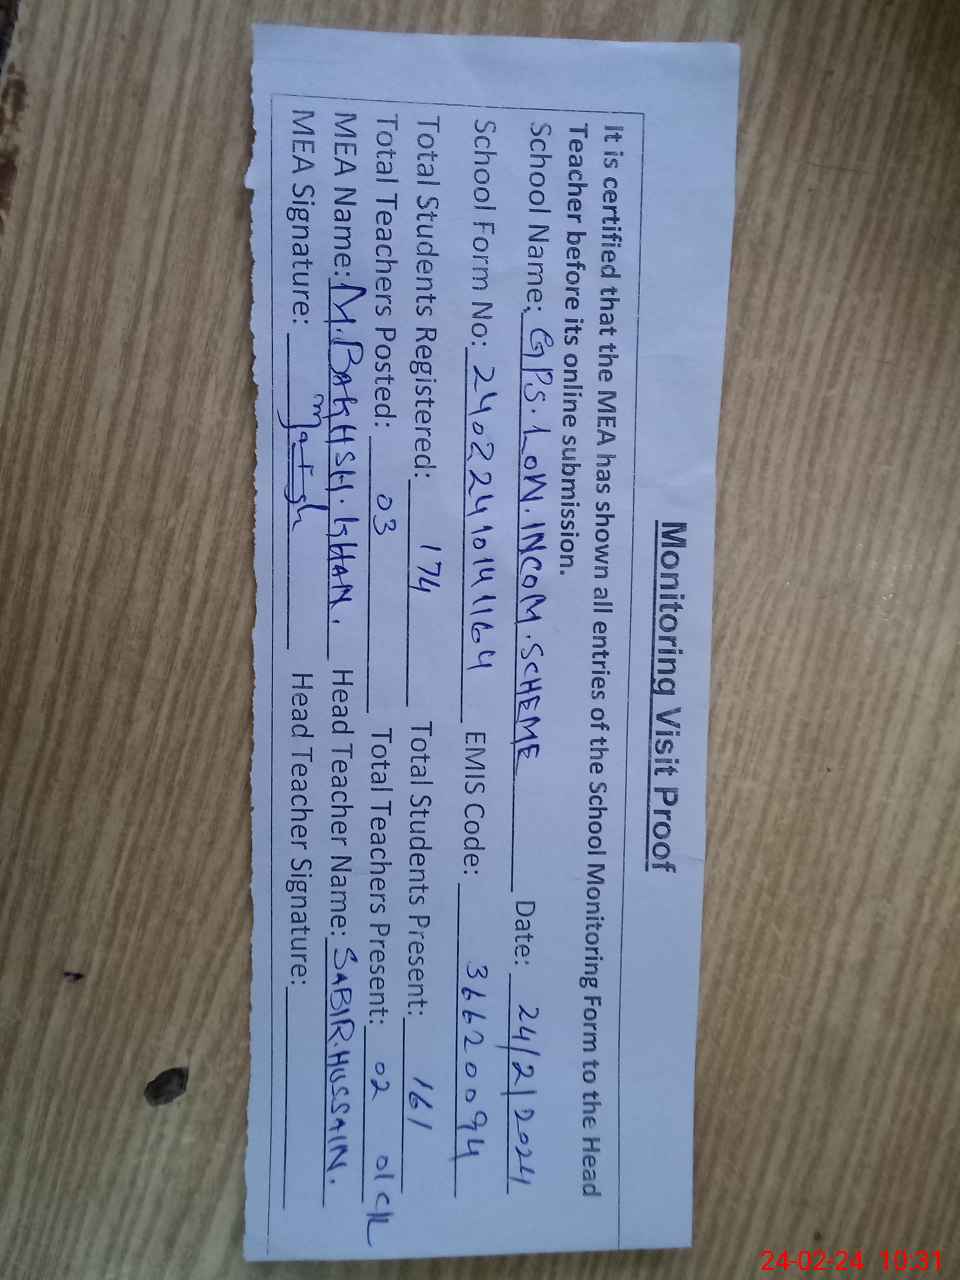 Monitoring Visit Proof
It is certified that the MEA has shown all entries of the School Monitoring Form to the Head
Teacher before its online submission.
School Name: GPS. LOW. INCOM. SCHEME Date: 24/2/2024
School Form No: 24022410141164 EMIS Code: 36620094
Total Students Registered: 174 Total Students Present: 161
Total Teachers Posted: 03 Total Teachers Present: 02 01CK
MEA Name: M. BAKHSH. KHAN. Head Teacher Name: SABIR. HUSSAIN.
MEA Signature: Head Teacher Signature:
24-02-24 10:31